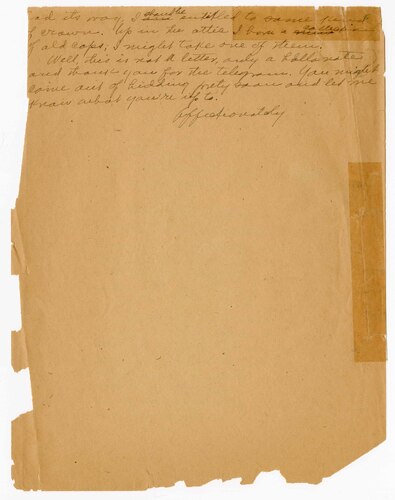 ad its way, I should be entitled to some kind
of crown. Up in the attic I have a collection
of old caps; I might take one of them.
Well, this is not a letter, only a hello note
and thank you for the telegram. You might
come out of hiding pretty soon and let me
know what you're up to.
Affectionately